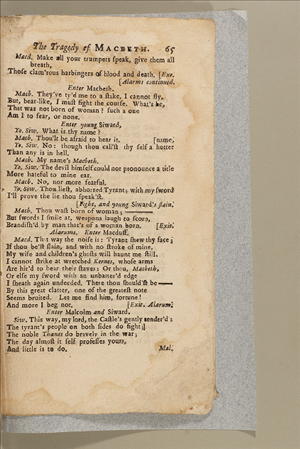 The Tragedy of MACBETH. 65
Macd. Make all your trumpets speak, give them all
breath,
Those clam'rous harbingers of blood and death. [Exe.
[Alarms continued.
Enter Macbeth.
Macb. They've ty'd me to a stake, I cannot fly,
But, bear-like, I must fight the course. What's he,
That was not born of woman? such a one
Am I to fear, or none.
Enter young Siward,
Yo. Siw. What is thy name?
Macb. Thou'lt be afraid to hear it. [name,
Yo. Siw. No: though thou call'st thy self a hotter
Than any is in hell.
Macb. My name's Macbeth.
Yo. Siw. The devil himself could not pronounce a title
More hateful to mine ear.
Macb. No, nor more fearful.
Yo. Siw. Thou liest, abhorred Tyrant; with my sword
I'll prove the lie thou speak'st.
[Fight, and young Siward's slain.
Macb. Thou wast born of woman;
But swords I smile at, weapons laugh to scorn,
Brandish'd by man that's of a woman born. [Exit.
Alarums. Enter Macduff.
Macd. That way the noise is: Tyrant shew thy face;
If thou be'st slain, and with no stroke of mine,
My wife and children's ghosts will haunt me still.
I cannot strike at wretched Kernes, whose arms
Are hir'd to bear their staves: Or thou, Macbeth,
Or else my sword with an unbatter'd edge
I sheath again undeeded. There thou should'st be——
By this great clatter, one of the greatest note
Seems bruited. Let me find him, fortune!
And more I beg not. [Exit. Alarum.
Enter Malcolm and Siward.
Siw. This way, my lord, the Castle's gently render'd:
The tyrant's people on both sides do fight;
The noble Thanes do bravely in the war;
The day almost it self professes yours,
And little is to do. Mal.